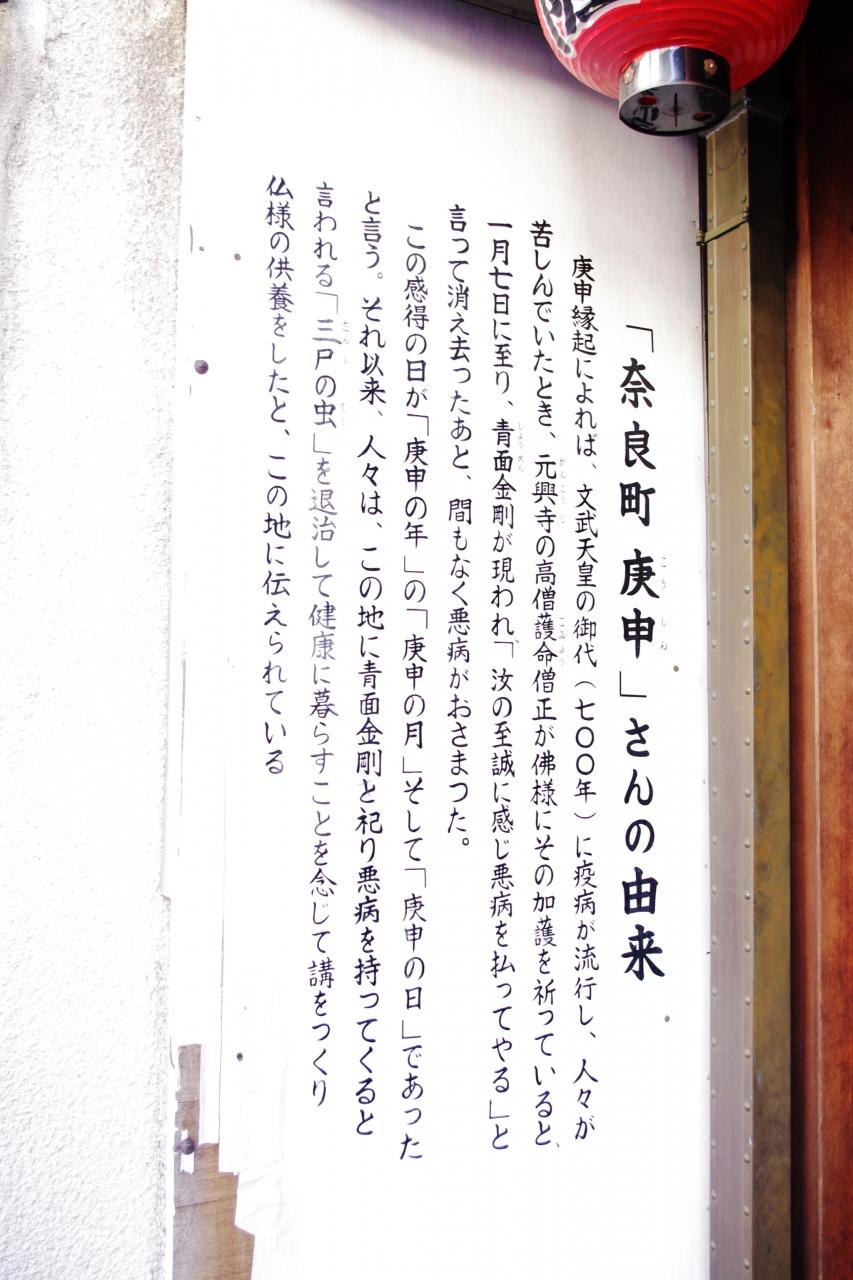 「奈良町 庚申」さんの由来
こうしん
庚申縁起によれば、文武天皇の御代(七〇〇年)に疫病が流行し、人々が
苦しんでいたとき、元興寺の高僧護命僧正が佛様にその加護を祈っていると、
がんこうじ
ごみょう
一月七日に至り、青面金剛が現われ、「汝の至誠に感じ悪病を払ってやる」と
しょうめん
言って消え去ったあと、間もなく悪病がおさまつた。
この感得の日が「庚申の年」の「庚申の月」そして「庚申の日」であった
と言う。それ以来、人々は、この地に青面金剛と祀り悪病を持ってくると
言われる「三尸の虫」を退治して健康に暮らすことを念じて講をつくり
さんし
むし
仏様の供養をしたと、この地に伝えられている